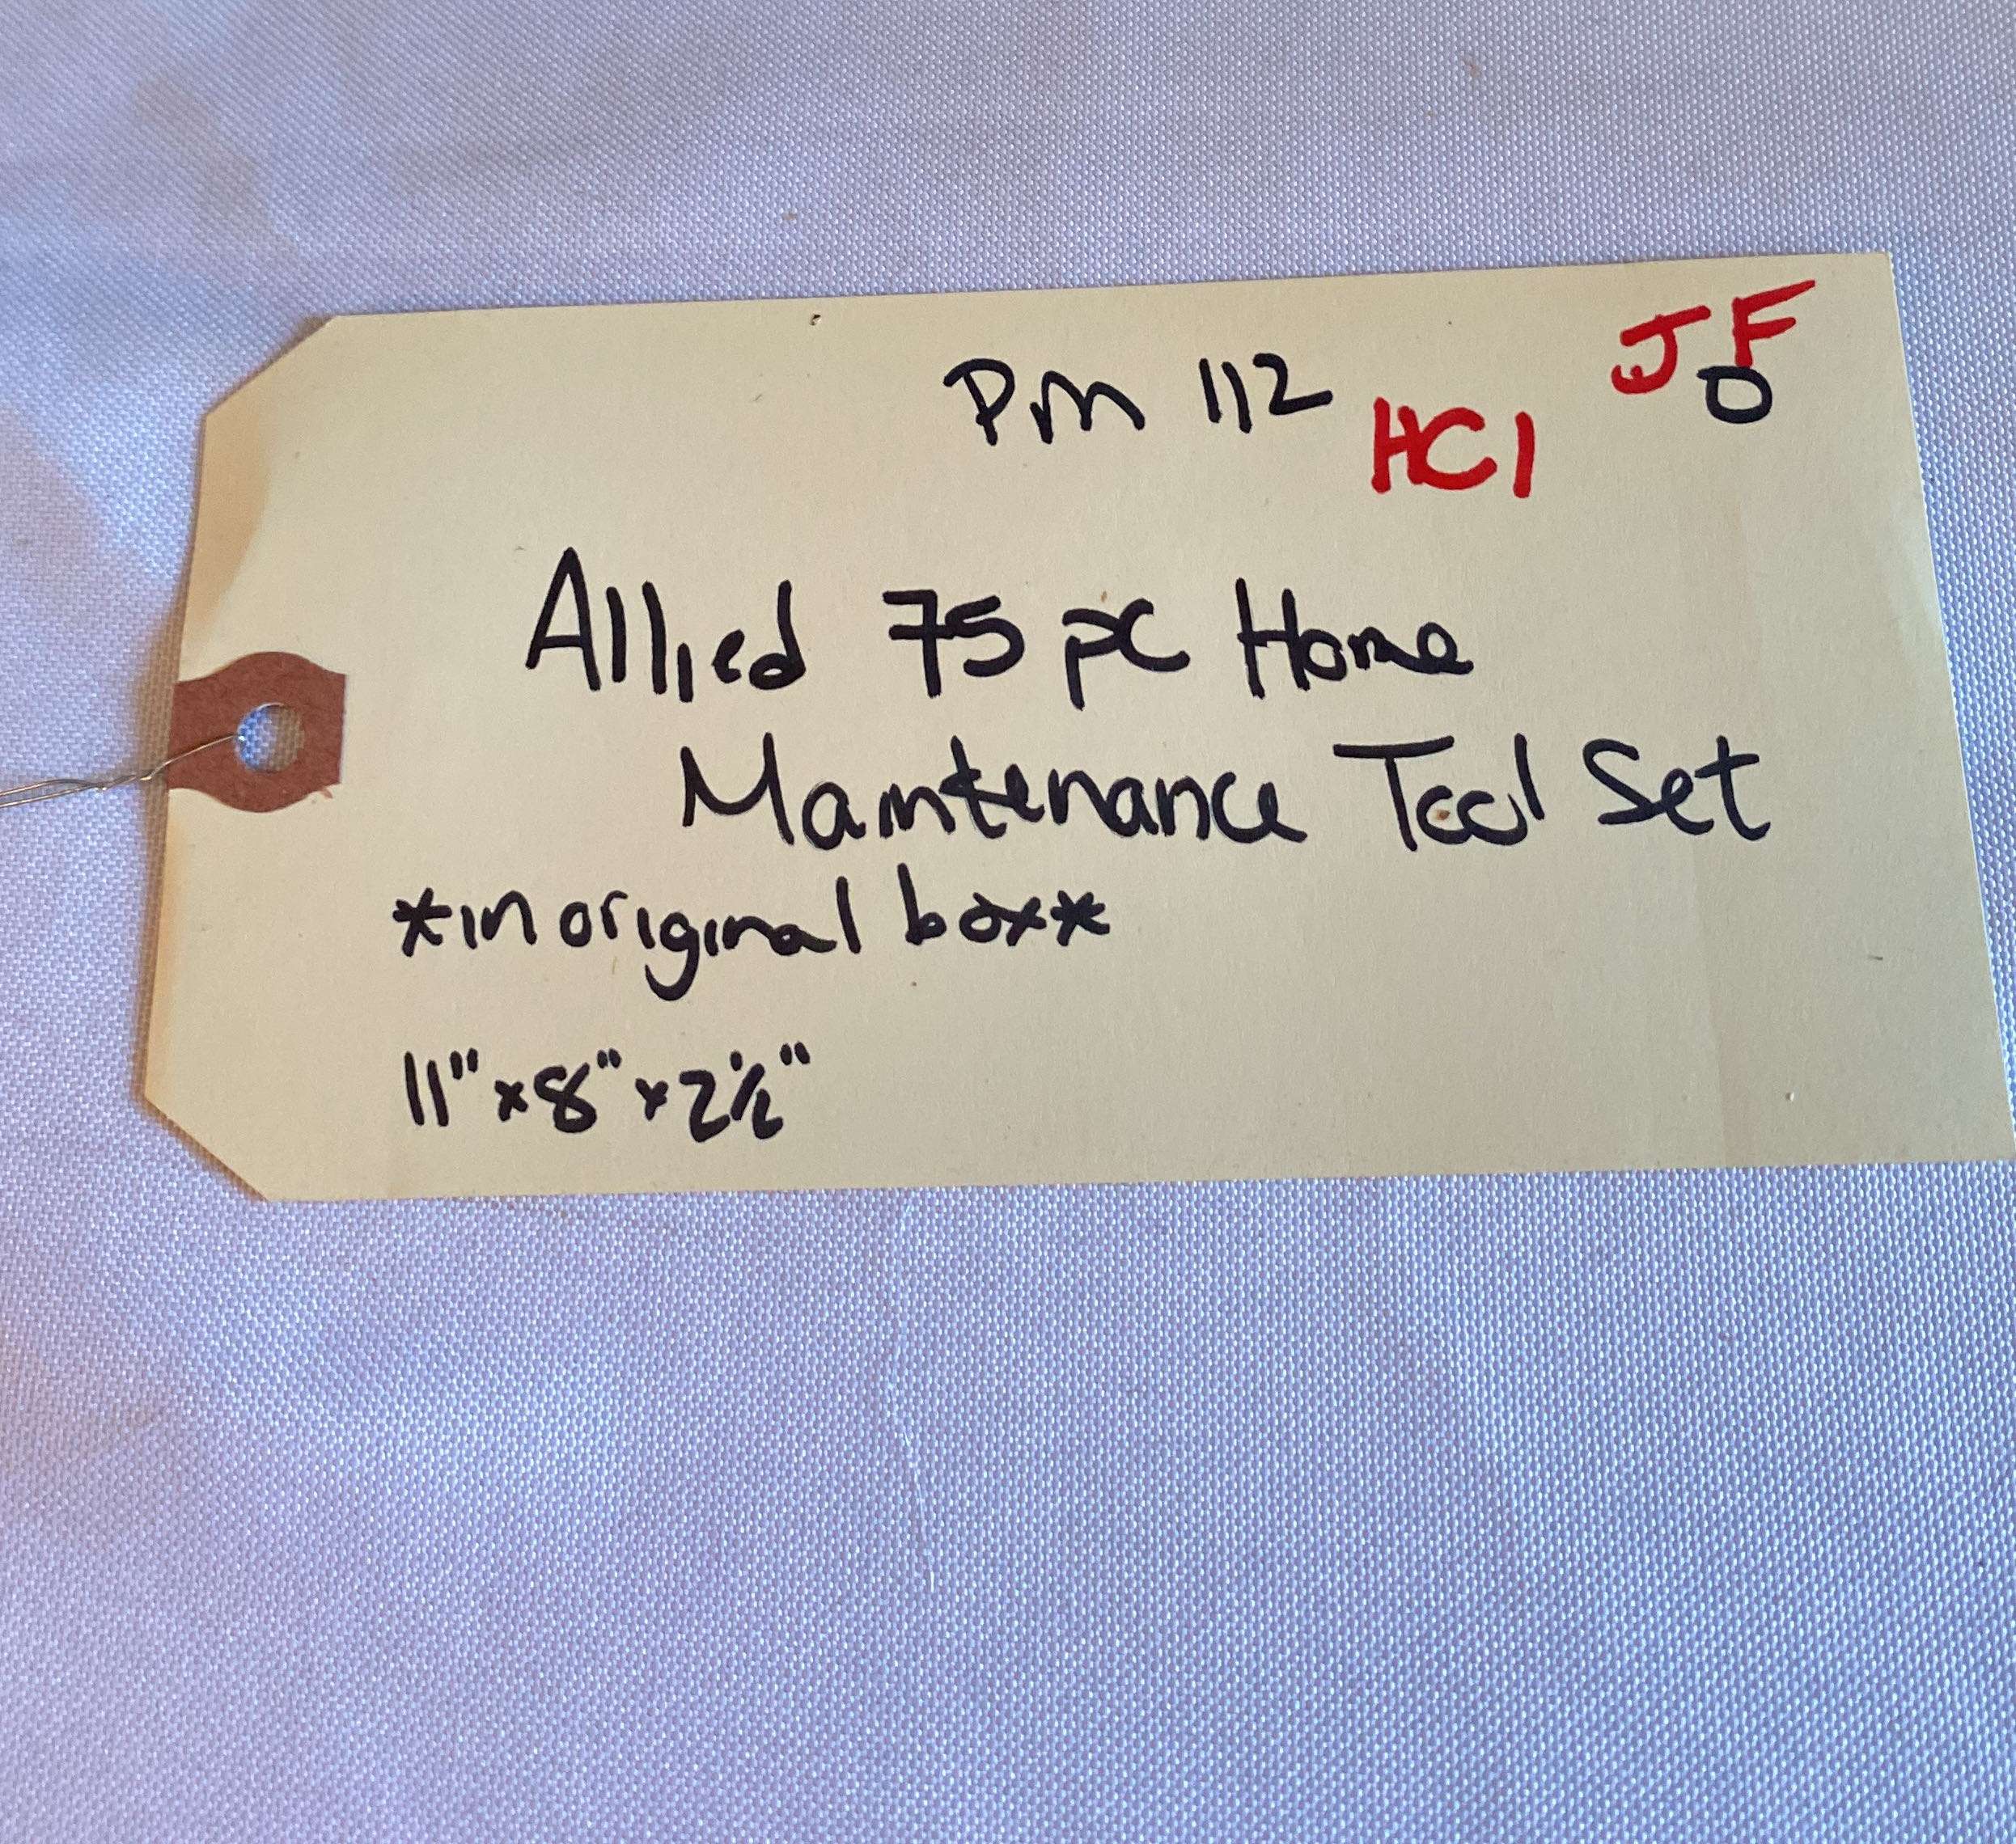 JF
O
Pm 112
HC1
Allied 75 pc Home
Maintenance Tool Set
*in original box*
11" x 8" x 2½"